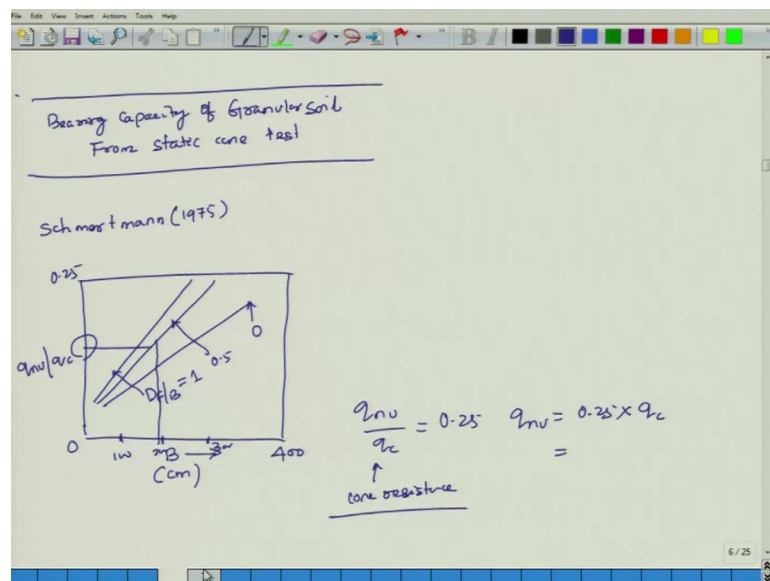 File Edit View Insert Actions Tools Help
Bearing Capacity of Granular Soil
From static cone test
Schmertmann (1975)
0.25
qnu/qc
Df/B = 1
0.5
0
0
100
200
B →
300
400
(cm)
qnu/qc = 0.25 qnu = 0.25 × qc
=
↑
cone resistance
6 / 25